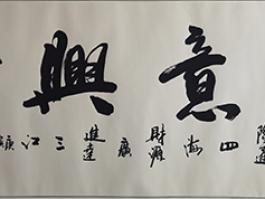 意興
隆通四海財源廣進達三江